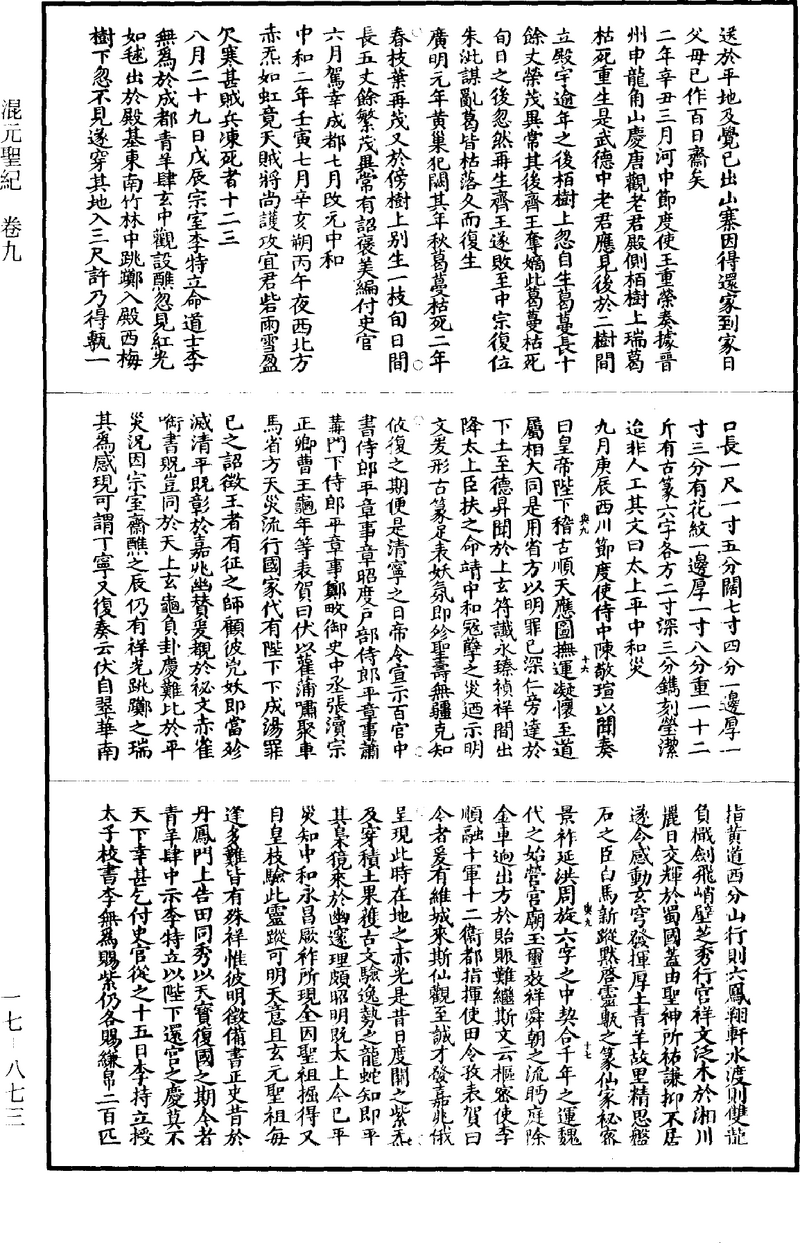 混元聖紀　卷九
送於平地及覺已出山寨因得還家到家日
父母已作百日齋矣
二年辛丑三月河中節度使王重榮奏據晉
州申龍角山慶唐觀老君殿側栢樹上瑞葛
枯死重生是武德中老君應見後於二樹間
立殿宇逾年之後栢樹上忽自生葛蔓長十
餘丈榮茂異常其後齊王奪嫡此葛蔓枯死
旬日之後忽然再生齊王遂敗至中宗復位
朱泚謀亂葛皆枯落久而復生
廣明元年黃巢犯闕其年秋葛蔓枯死二年
春枝葉再茂又於傍樹上别生一枝旬日間
長五丈餘繁茂異常有詔褒美編付史官
六月駕幸成都七月改元中和
中和二年壬寅七月辛亥朔丙午夜西北方
赤炁如虹竟天賊將尚讓攻宜君砦雨雪盈
尺寒甚賊兵凍死者十二三
八月二十九日戊辰宗室李特立命道士李
無爲於成都青羊肆玄中觀設醮忽見紅光
如毬出於殿基東南竹林中跳躑入殿西梅
樹下忽不見遂穿其地入三尺許乃得甎一
口長一尺一寸五分闊七寸四分一邊厚一
寸三分有花紋一邊厚一寸八分重一十二
斤有古篆六字各方二寸深三分鐫刻瑩潔
迨非人工其文曰太上平中和災
九月庚辰西川節度使侍中陳敬瑄以聞奏
曰皇帝陛下稽古順天應圖撫運凝懷至道
屬相大同是用省方以明罪己深仁旁達於
下土至德昇聞於上玄符讖永臻禎祥間出
降太上臣扶之命靖中和冦孽之災迺示明
文爰形古篆足表妖氛即殄聖壽無疆克知
攸復之期便是清寧之日帝令宣示百官中
書侍郎平章事韋昭度戶部侍郎平章事蕭
遘門下侍郎平章事鄭畋御史中丞張瀆宗
正卿曹王龜年等表賀曰伏以萑蒲嘯聚車
馬省方天災流行國家代有陛下下成湯罪
己之詔徵王者有征之師顧彼兇妖即當殄
滅清平既彰於嘉兆幽贊爰觀於祕文赤雀
銜書貺豈同於天上玄龜負卦慶難比於平
災況因宗室齋醮之辰仍有祥光跳躑之瑞
其爲感現可謂丁寧又復奏云伏自翠華南
指黃道西分山行則六鳳翔軒水渡則雙龍
負檝劍飛峭壁芝秀行宮祥文泛木於湘川
麗日交輝於蜀國蓋由聖神所祐謙抑不居
遂令感動玄穹發揮厚土青羊故里精思醮
石之臣白馬新蹤黙啓靈甎之篆仙家祕宻
景祚延洪周旋六字之中契合千年之運魏
代之始營宮廟玉璽效祥舜朝之流眄庭除
金車逈出方於貽貺難繼斯文云樞密使李
順融十軍十二衞都指揮使田令孜表賀曰
今者爰有維城來斯仙觀至誠才發嘉兆俄
呈現此時在地之赤光是昔日度關之紫炁
及穿積土果獲古文驗逸勢之龍蛇知即平
其梟獍來於幽邃理頗昭明既太上今已平
災知中和永昌厥祚所現全因聖祖掘得又
自皇枝驗此靈蹤可明天意且玄元聖祖每
逢多難皆有殊祥惟彼明徵備書正史昔於
丹鳳門上告田同秀以天寳復國之期今者
青羊肆中示李特立以陛下還宮之慶莫不
天下幸甚乞付史官從之十五日李特立授
太子校書李無爲賜紫仍各賜縑帛二百匹
與九
十六
與九
十七
一七－八七三